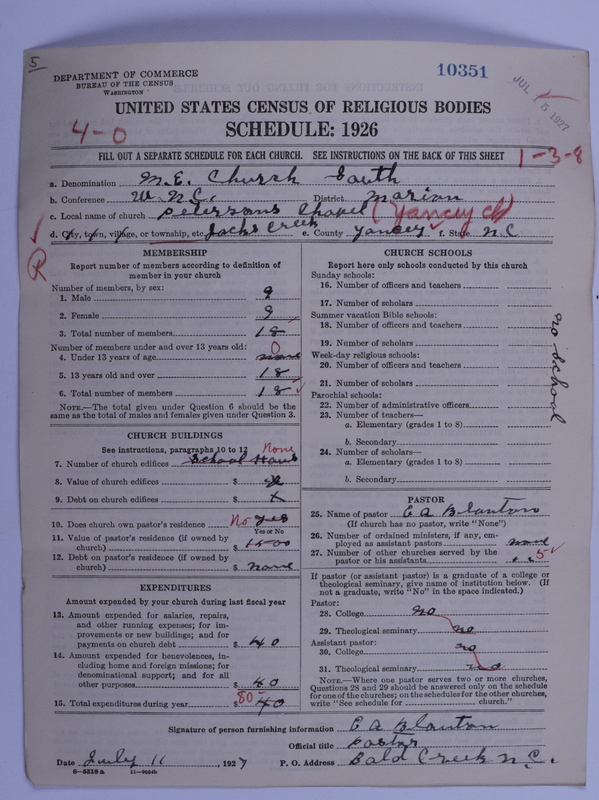 5
DEPARTMENT OF COMMERCE
BUREAU OF THE CENSUS
WASHINGTON
10351
JUL 15 1927
UNITED STATES CENSUS OF RELIGIOUS BODIES
4-0
SCHEDULE: 1926
FILL OUT A SEPARATE SCHEDULE FOR EACH CHURCH. SEE INSTRUCTIONS ON THE BACK OF THIS SHEET
1-3-8
a. Denomination M.E. Church South
b. Conference W.N.C. District Marion
c. Local name of church Petersons Chapel (Yancey Ct)
d. City, town, village, or township, etc. Jacks Creek e. County Yancey f. State N.C
R
MEMBERSHIP
Report number of members according to definition of
member in your church
Number of members, by sex:
1. Male 9
2. Female 9
3. Total number of members 18
Number of members under and over 13 years old: 0
4. Under 13 years of age none
5. 13 years old and over 18
6. Total number of members 18
NOTE.—The total given under Question 6 should be the
same as the total of males and females given under Question 3.
CHURCH BUILDINGS
See instructions, paragraphs 10 to 12 None
7. Number of church edifices School House
8. Value of church edifices $ x
9. Debt on church edifices $ x
10. Does church own pastor's residence? No yes
Yes or No
11. Value of pastor's residence (if owned by
church) $ 1500
12. Debt on pastor's residence (if owned by
church) $ none
EXPENDITURES
Amount expended by your church during last fiscal year
13. Amount expended for salaries, repairs,
and other running expenses; for im-
provements or new buildings; and for
payments on church debt $ 40
14. Amount expended for benevolences, in-
cluding home and foreign missions; for
denominational support; and for all
other purposes $ 40
15. Total expenditures during year $ 80 40
CHURCH SCHOOLS
Report here only schools conducted by this church
Sunday schools:
16. Number of officers and teachers
17. Number of scholars
Summer vacation Bible schools:
18. Number of officers and teachers
19. Number of scholars
Week-day religious schools:
20. Number of officers and teachers
21. Number of scholars
Parochial schools:
22. Number of administrative officers
23. Number of teachers—
a. Elementary (grades 1 to 8)
b. Secondary
24. Number of scholars—
a. Elementary (grades 1 to 8)
b. Secondary
no school
PASTOR
25. Name of pastor E A Blanton
(If church has no pastor, write "None")
26. Number of ordained ministers, if any, em-
ployed as assistant pastors none
27. Number of other churches served by the
pastor or his assistants 5
If pastor (or assistant pastor) is a graduate of a college or
theological seminary, give name of institution below. (If
not a graduate, write "No" in the space indicated.)
Pastor:
28. College no
29. Theological seminary no
Assistant pastor:
30. College no
31. Theological seminary no
NOTE.—Where one pastor serves two or more churches,
Questions 28 and 29 should be answered only on the schedule
for one of the churches; on the schedules for the other churches,
write "See schedule for church."
Signature of person furnishing information E A Blanton
Official title Pastor
Date July 11, 1927 P. O. Address Bald Creek N.C.
8-5318a 11-9024b